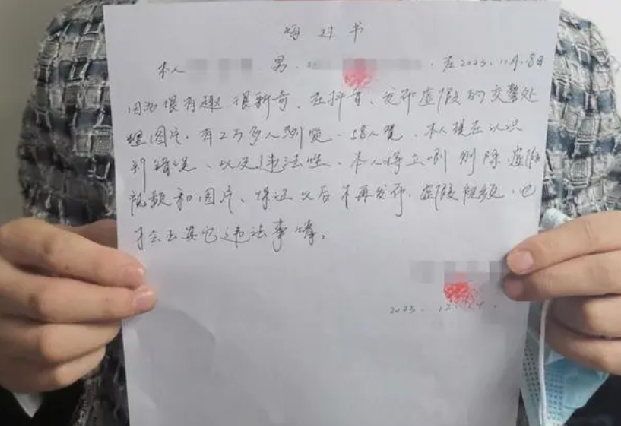 悔过书
本人 男 在2023.12月.8日
因为很有趣、很新奇、在抖音、发布虚假的交警处
理图片、有2万多人浏览、 本人现在认识
到错误、以及违法性、本人将立即删除虚假
视频和图片、保证以后不再发布虚假视频、也
不会去其它违法事情。
2023. 12.